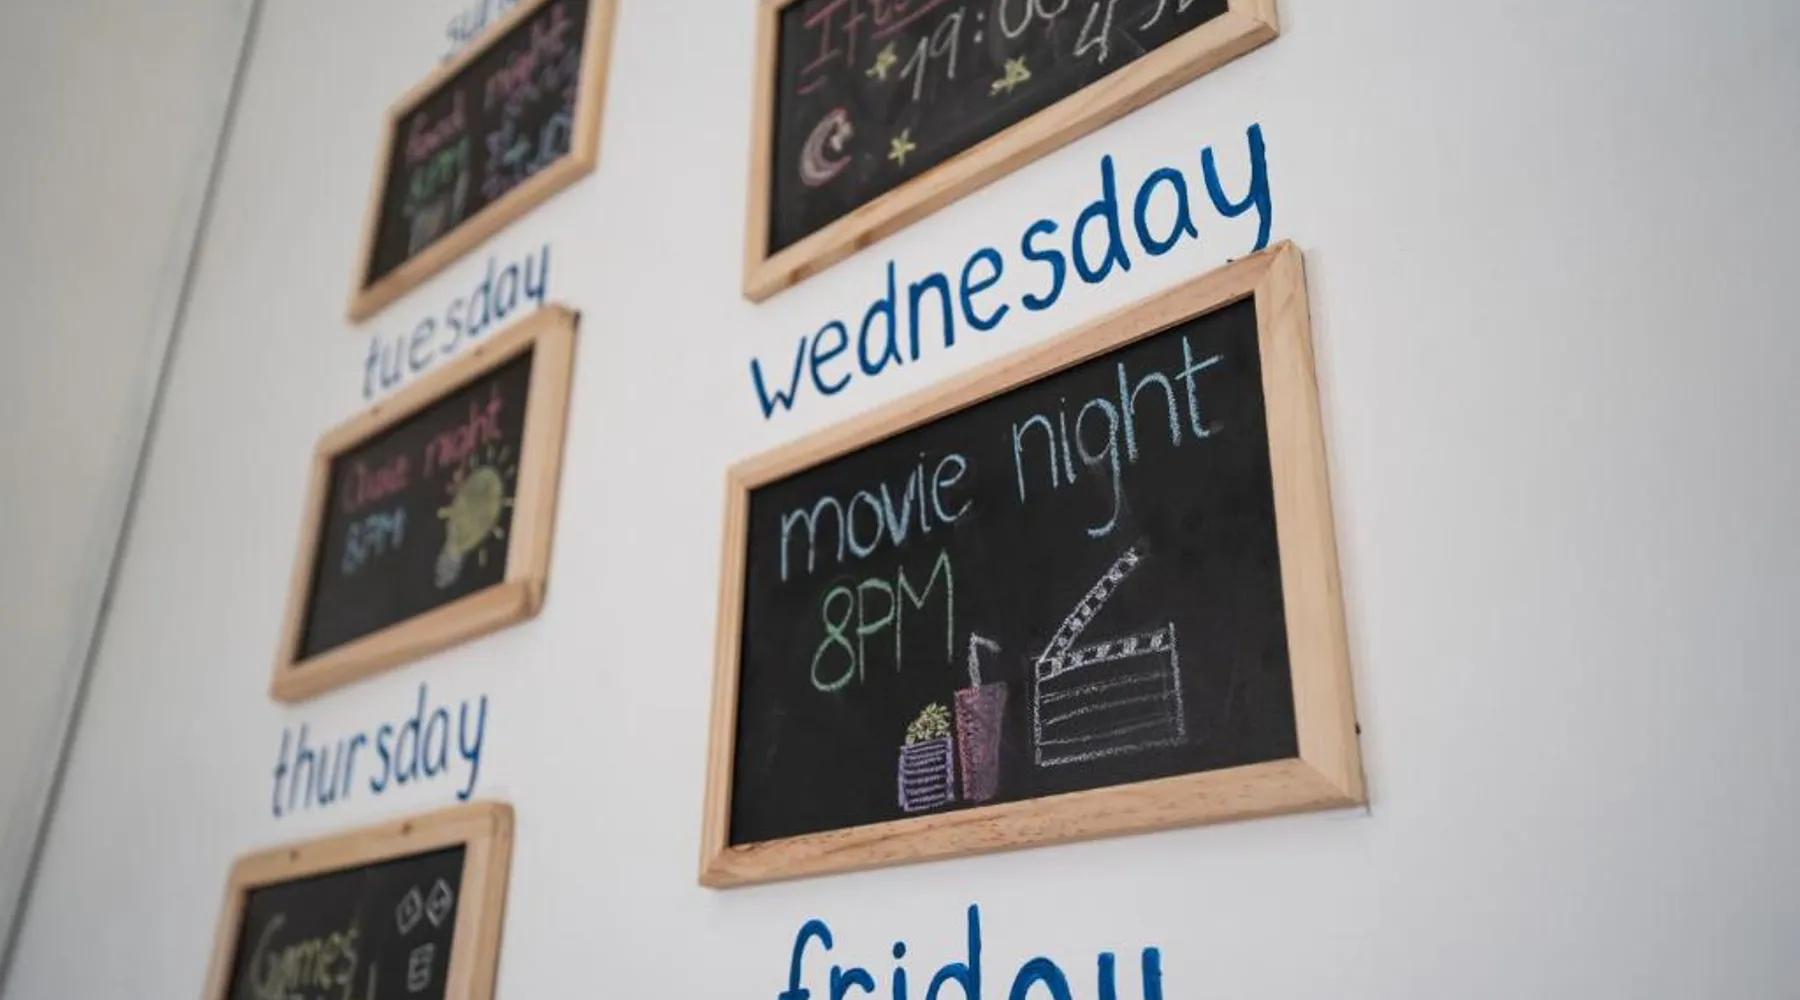 food night
8PM
19:00
tuesday
night
8PM
wednesday
movie night
8PM
thursday
Games
friday